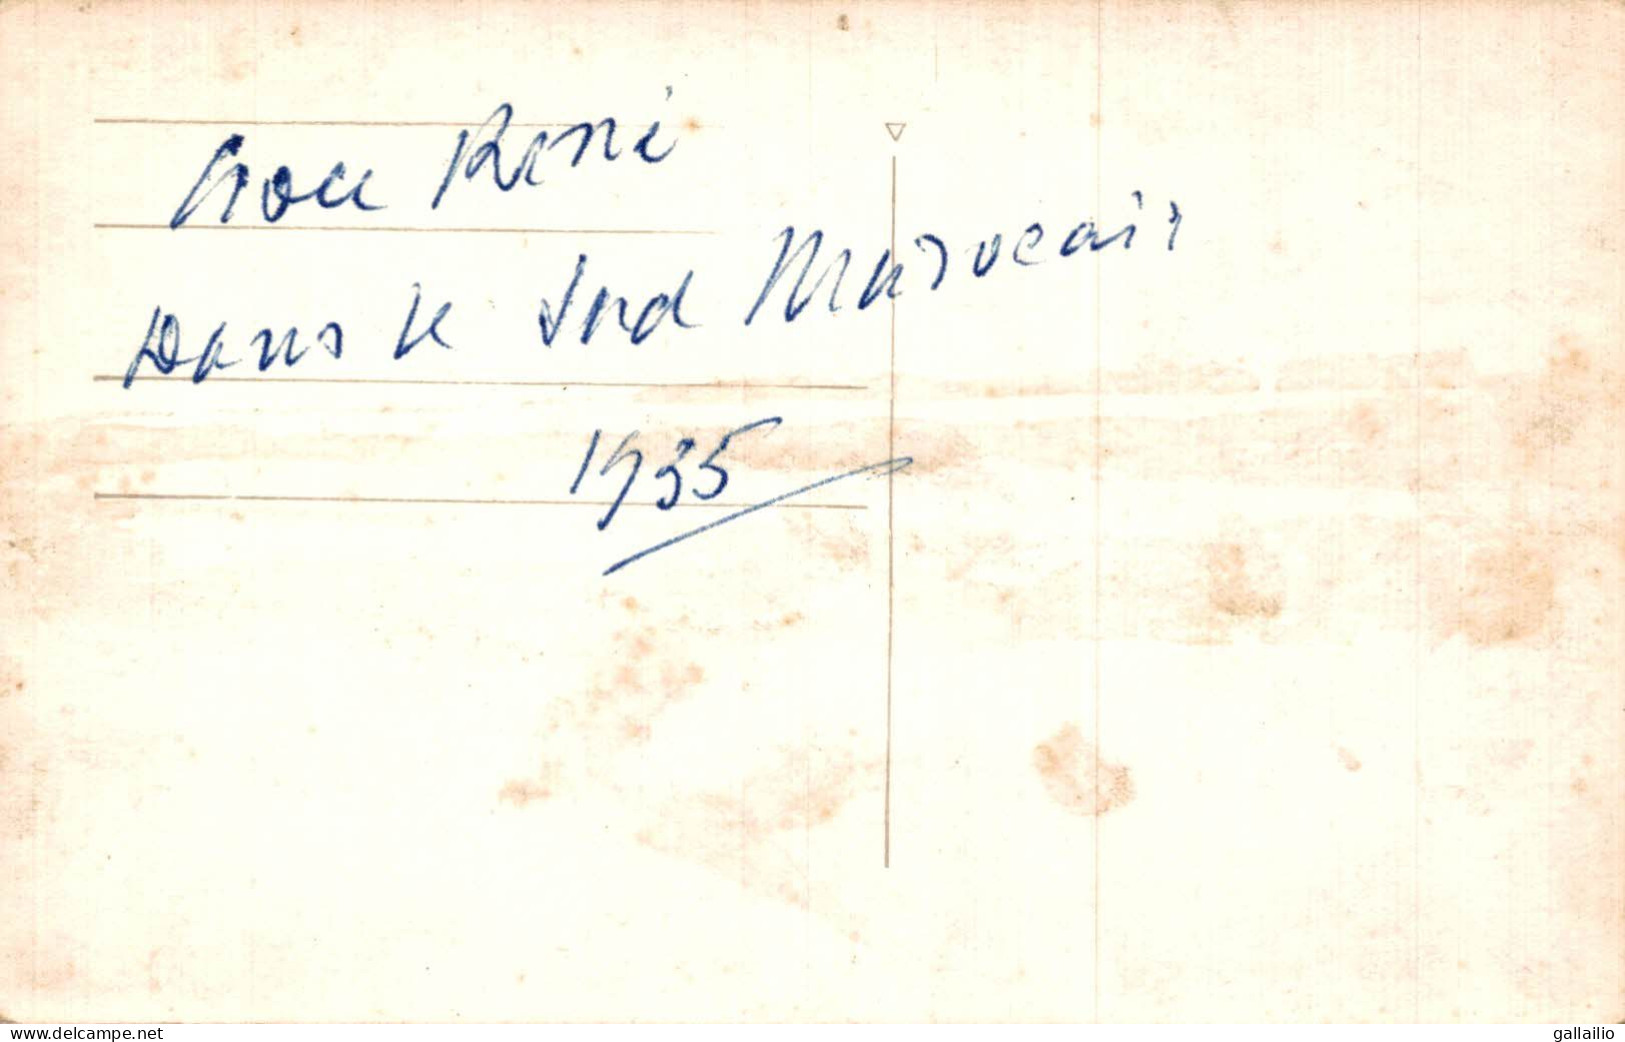 René
Dans le Sud Marocain
1935
www.delcampe.net
gallailio